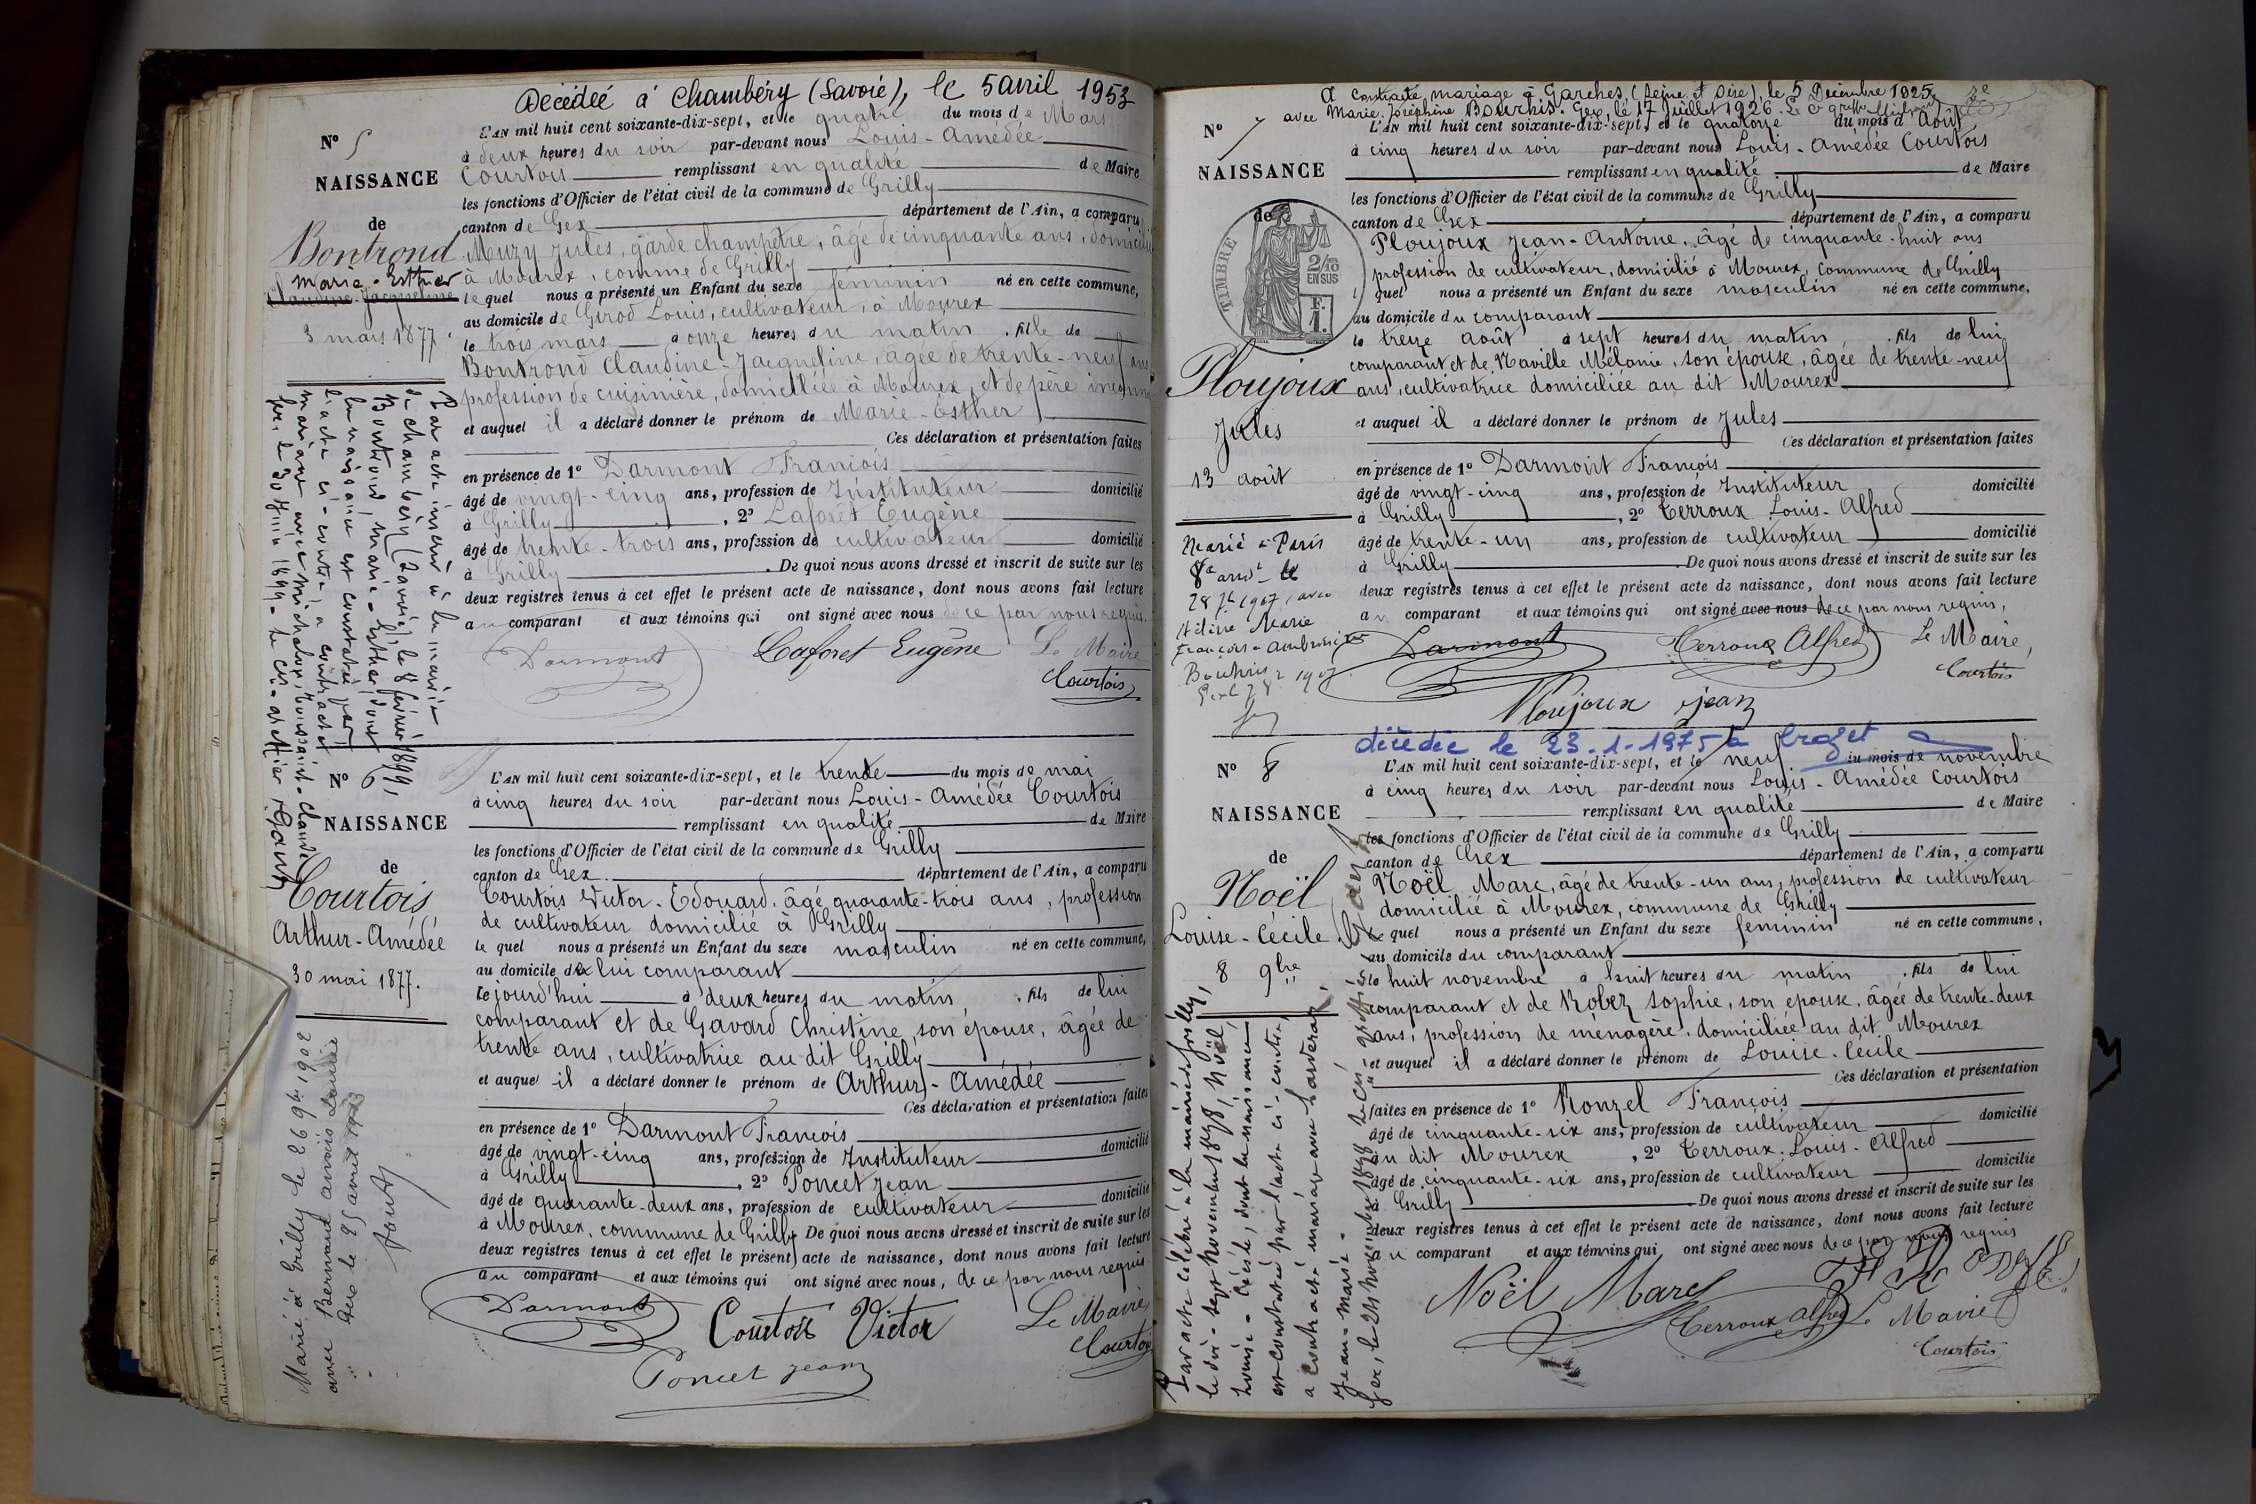 Décédée à Chambéry (Savoie), le 5 avril 1953
N° 5
NAISSANCE
de
Bontrond
Marie-Esther
Claudine-Jacqueline
3 mars 1877.
L'AN mil huit cent soixante-dix-sept, et le quatre du mois de Mars
à deux heures du soir par-devant nous Louis-Amédée
Courtois remplissant en qualité de Maire
les fonctions d'Officier de l'état civil de la commune de Grilly
canton de Gex département de l'Ain, a comparu
Muzy Jules, garde champêtre, âgé de cinquante ans, domicilié
à Mourex, comme de Grilly
lequel nous a présenté un Enfant du sexe féminin né en cette commune,
au domicile de Girod Louis, cultivateur, à Mourex
le trois mars à onze heures du matin, fille de
Bontrond Claudine-Jacqueline, âgée de trente-neuf ans
profession de cuisinière, domiciliée à Mourex, et de père inconnu
et auquel il a déclaré donner le prénom de Marie-Esther
Ces déclaration et présentation faites
en présence de 1° Darmont François
âgé de vingt-cinq ans, profession de Instituteur domicilié
à Grilly, 2° Laforêt Eugène
âgé de trente-trois ans, profession de cultivateur domicilié
à Grilly. De quoi nous avons dressé et inscrit de suite sur les
deux registres tenus à cet effet le présent acte de naissance, dont nous avons fait lecture
au comparant et aux témoins qui ont signé avec nous de ce par nous requis.
Darmont Laforet Eugène Le Maire
Courtois
Par acte inséré à la mairie
de Chambéry (Savoie), le 8 février 1899,
Bontrond, Marie-Esther, dont
la naissance est constatée par
l'acte ci-contre, a contracté
mariage avec Toussaint-Claude
Gex, le 30 Juin 1899-
N° 6
NAISSANCE
de
Courtois
Arthur-Amédée
30 mai 1877.
L'AN mil huit cent soixante-dix-sept, et le trente du mois de mai
à cinq heures du soir par-devant nous Louis-Amédée Courtois
remplissant en qualité de Maire
les fonctions d'Officier de l'état civil de la commune de Grilly
canton de Gex. département de l'Ain, a comparu
Courtois Victor-Edouard, âgé quarante-trois ans, profession
de cultivateur domicilié à Grilly
lequel nous a présenté un Enfant du sexe masculin né en cette commune,
au domicile de lui comparant
le jourd'hui à deux heures du matin, fils de lui
comparant et de Gavard Christine, son épouse, âgée de
trente ans, cultivatrice au dit Grilly
et auquel il a déclaré donner le prénom de Arthur-Amédée
Ces déclaration et présentation faites
en présence de 1° Darmont François
âgé de vingt-cinq ans, profession de Instituteur domicilié
à Grilly, 2° Poncet Jean
âgé de quarante-deux ans, profession de cultivateur domicilié
à Mourex, commune de Grilly De quoi nous avons dressé et inscrit de suite sur les
deux registres tenus à cet effet le présent acte de naissance, dont nous avons fait lecture
au comparant et aux témoins qui ont signé avec nous, de ce par nous requis.
Darmont Courtois Victor Le Maire
Poncet Jean Courtois
Marié à Grilly le 26 9bre 1902
avec Bernard
le 25 avril
a contracté mariage à Garches, (Seine et Oise), le 5 Décembre 1925,
avec Marie Joséphine Bourhis. Gex, le 17 Juillet 1926.
N° 7
NAISSANCE
de
TIMBRE
2/10
EN SUS
F.
1.
Ploujoux
Jules
13 août
L'AN mil huit cent soixante-dix-sept, et le quatorze du mois d'Août
à cinq heures du soir par-devant nous Louis-Amédée Courtois
remplissant en qualité de Maire
les fonctions d'Officier de l'état civil de la commune de Grilly
canton de Gex département de l'Ain, a comparu
Ploujoux Jean-Antoine, âgé de cinquante-huit ans
profession de cultivateur, domicilié à Mourex, commune de Grilly
lequel nous a présenté un Enfant du sexe masculin né en cette commune,
au domicile du comparant
le treize août à sept heures du matin, fils de lui
comparant et de Naville Mélanie, son épouse, âgée de trente-neuf
ans, cultivatrice domiciliée au dit Mourex
et auquel il a déclaré donner le prénom de Jules
Ces déclaration et présentation faites
en présence de 1° Darmont François
âgé de vingt-cinq ans, profession de Instituteur domicilié
à Grilly, 2° Terroux Louis-Alfred
âgé de trente-un ans, profession de cultivateur domicilié
à Grilly. De quoi nous avons dressé et inscrit de suite sur les
deux registres tenus à cet effet le présent acte de naissance, dont nous avons fait lecture
au comparant et aux témoins qui ont signé avec nous de ce par nous requis,
Darmont Terroux Alfred Le Maire,
Courtois
Ploujoux Jean
Marié à Paris
arrt le
28 1907, avec
Marie
Françoise-Ambroisine
décédée le 23-1-1975 à
N° 8
NAISSANCE
de
Noël
Louise-Cécile
8 9bre
L'AN mil huit cent soixante-dix-sept, et le neuf du mois de novembre
à cinq heures du soir par-devant nous Louis-Amédée Courtois
remplissant en qualité de Maire
les fonctions d'Officier de l'état civil de la commune de Grilly
canton de Gex département de l'Ain, a comparu
Noël Marc, âgé de trente-un ans, profession de cultivateur
domicilié à Mourex, commune de Grilly
lequel nous a présenté un Enfant du sexe féminin né en cette commune,
au domicile du comparant
le huit novembre à huit heures du matin, fils de lui
comparant et de Robez Sophie, son épouse, âgée de trente-deux
ans, profession de ménagère, domiciliée au dit Mourex
et auquel il a déclaré donner le prénom de Louise-Cécile
Ces déclaration et présentation
faites en présence de 1° Ronzel François
âgé de cinquante-six ans, profession de cultivateur domicilié
au dit Mourex, 2° Terroux Louis-Alfred
âgé de cinquante-six ans, profession de cultivateur domicilié
à Grilly. De quoi nous avons dressé et inscrit de suite sur les
deux registres tenus à cet effet le présent acte de naissance, dont nous avons fait lecture
au comparant et aux témoins qui ont signé avec nous de ce par nous requis
Noël Marc
Terroux Alfred Le Maire
Courtois
Par acte célébré à la mairie de Grilly,
le dix-sept novembre 1898, Noël,
Louise-Cécile, dont la naissance
est constatée par l'acte ci-contre,
a contracté mariage avec
Jean-Marie-
Gex, le 24 Novembre 1898